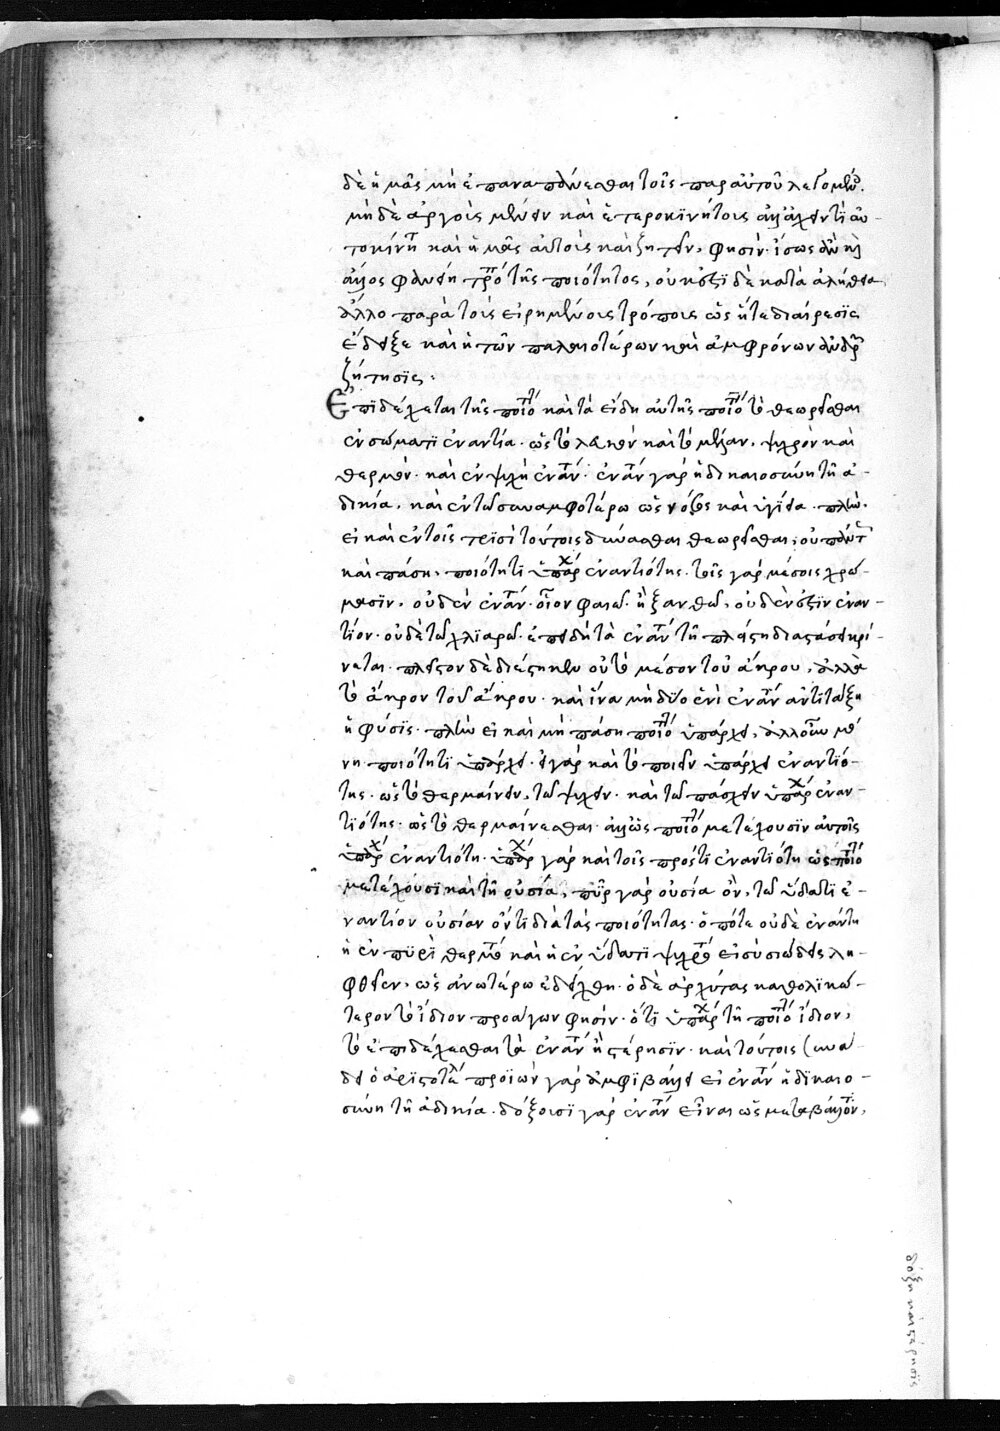 δὲ ἡμᾶς μὴ ἐπαναπαύεσθαι τοῖς παρ αὐτοῦ λεγομένοις.
μηδὲ ἀργοῖς μένειν καὶ ἑτεροκινήτοις ἀλλ' ἔχειν τι αὐ-
τοκίνητον καὶ ἡμᾶς αὐτοὺς καὶ ζητεῖν, φησὶν· ἴσως οὖν καὶ
ἄλλος φανείη τρόπος τῆς ποιότητος, οὐκ ἔστι δὲ κατὰ ἀλήθεια
ἄλλο παρὰ τοῖς εἰρημένοις τρόποις ὡς ἥ τε διαίρεσις
ἔδειξε καὶ ἡ τῶν παλαιοτέρων καὶ ἐμφρόνων ἀνδρῶν
ζήτησις.
Ἐπιδέχεται τῆς ποιότητος καὶ τὰ εἴδη αὐτῆς ποιότητος τὸ θεωρεῖσθαι
ἐν σώματι ἐναντία· ὡς τὸ λευκὸν καὶ τὸ μέλαν, ψυχρὸν καὶ
θερμὸν· καὶ ἐν ψυχῇ ἐναντία· ἐναντία γὰρ ἡ δικαιοσύνη τῇ ἀ-
δικία, καὶ ἐν τῷ συναμφοτέρω ὡς νόσος καὶ ὑγίεια· πλὴν.
εἰ καὶ ἐν τοῖς τρισὶ τούτοις δύνασθαι θεωρεῖσθαι, οὐ πάντως
καὶ πάση, ποιότητι ὑπάρχει ἐναντιότης· τοῖς γὰρ μέσοις χρώ-
μασιν, οὐδὲν ἐναντίον· οἷον φαιῶ ἢ ξανθῶ, οὐδὲν ἔστιν ἐναν-
τίον· οὐδὲ τῶ χλιαρῶ· ἐπειδὴ τὰ ἐναντία τῇ πλείστῃ διαστάσει κρί-
νεται· πλεῖστον δὲ διέστηκεν οὐ τὸ μέσον τοῦ ἄκρου, ἀλλὰ
τὸ ἄκρον τοῦ ἄκρου· καὶ ἵνα μὴ δύο ἑνὶ ἐναντία ἀντιτάξη
ἡ φύσις· πλὴν εἰ καὶ μὴ πάση ποιότητι ὑπάρχει, ἀλλ' οὖν μό
νη ποιότητι ὑπάρχει· εἰ γὰρ καὶ τὸ ποιεῖν ὑπάρχει ἐναντιό-
της· ὡς τὸ θερμαίνειν, τῶ ψύχειν· καὶ τῶ πάσχειν ὑπάρχει ἐναν-
τιότης· ὡς τὸ θερμαίνεσθαι· ἀλλ' ὡς ποιότητος μετέχουσιν αὐτοῖς
ὑπάρχει ἐναντιότης· ὑπάρχει γὰρ καὶ τοῖς πρός τι ἐναντιότης ὡς ποιότητος
μετέχουσι καὶ τῇ οὐσία, πῦρ γὰρ οὐσία ὂν, τῶ ὕδατι ἐ-
ναντίον οὐσίαν ὄντι διὰ τὰς ποιότητας· ὁπότε οὐδὲ ἐναντία
ἡ ἐν πυρὶ θερμότης καὶ ἡ ἐν ὕδατι ψυχρότης εἰ οὐσιώδεις λη-
φθεῖεν, ὡς ἀνωτέρω ἐδείχθη· ὁ δὲ ἀρχύτας καθολικώ-
τερον τὸ ἴδιον προαγων φησὶν· ὅτι ὑπάρχει τῇ ποιότητι ἴδιον,
τὸ ἐπιδέχεσθαι τὰ ἐναντία ἢ στέρησιν· καὶ τούτοις συνά
δει ὁ ἀριστοτέλης προϊὼν γὰρ ἀμφιβάλλει εἰ ἐναντία ἡ δικαιο-
σύνη τῇ ἀδικία· δόξοισι γὰρ ἐναντία εἶναι ὡς μεταβάλλουσιν,
δόξη καὶ στέρησις